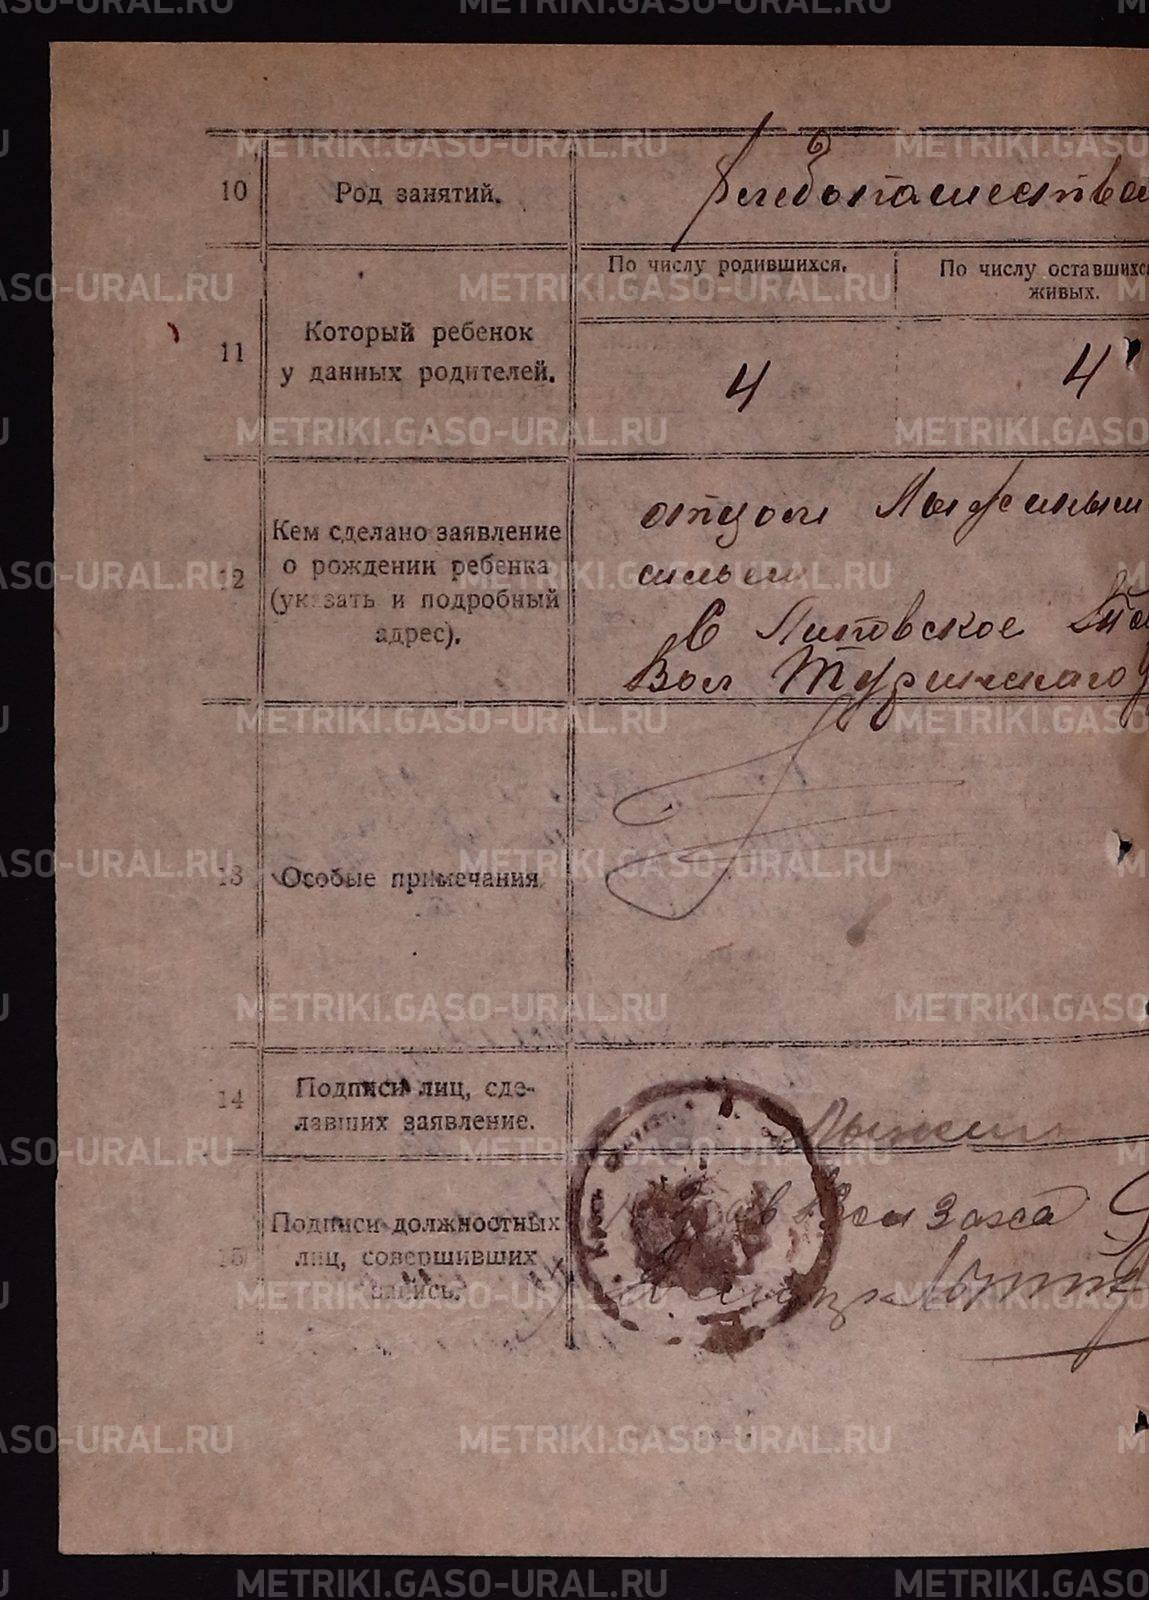 METRIKI.GASO-URAL.RU
10 Род занятий. Хлебопашество
11 Который ребенок
у данных родителей.
По числу родившихся.
4
По числу оставшихс
живых.
4
12 Кем сделано заявление
о рождении ребенка
(указать и подробный
адрес).
отцом Лыжиным
сильем
С Липовское
Вол Туринского
13 Особые примечания.
14 Подписи лиц, сде-
лавших заявление.
Лыжин
15 Подписи должностных
лиц, совершивших
запись.
Зав